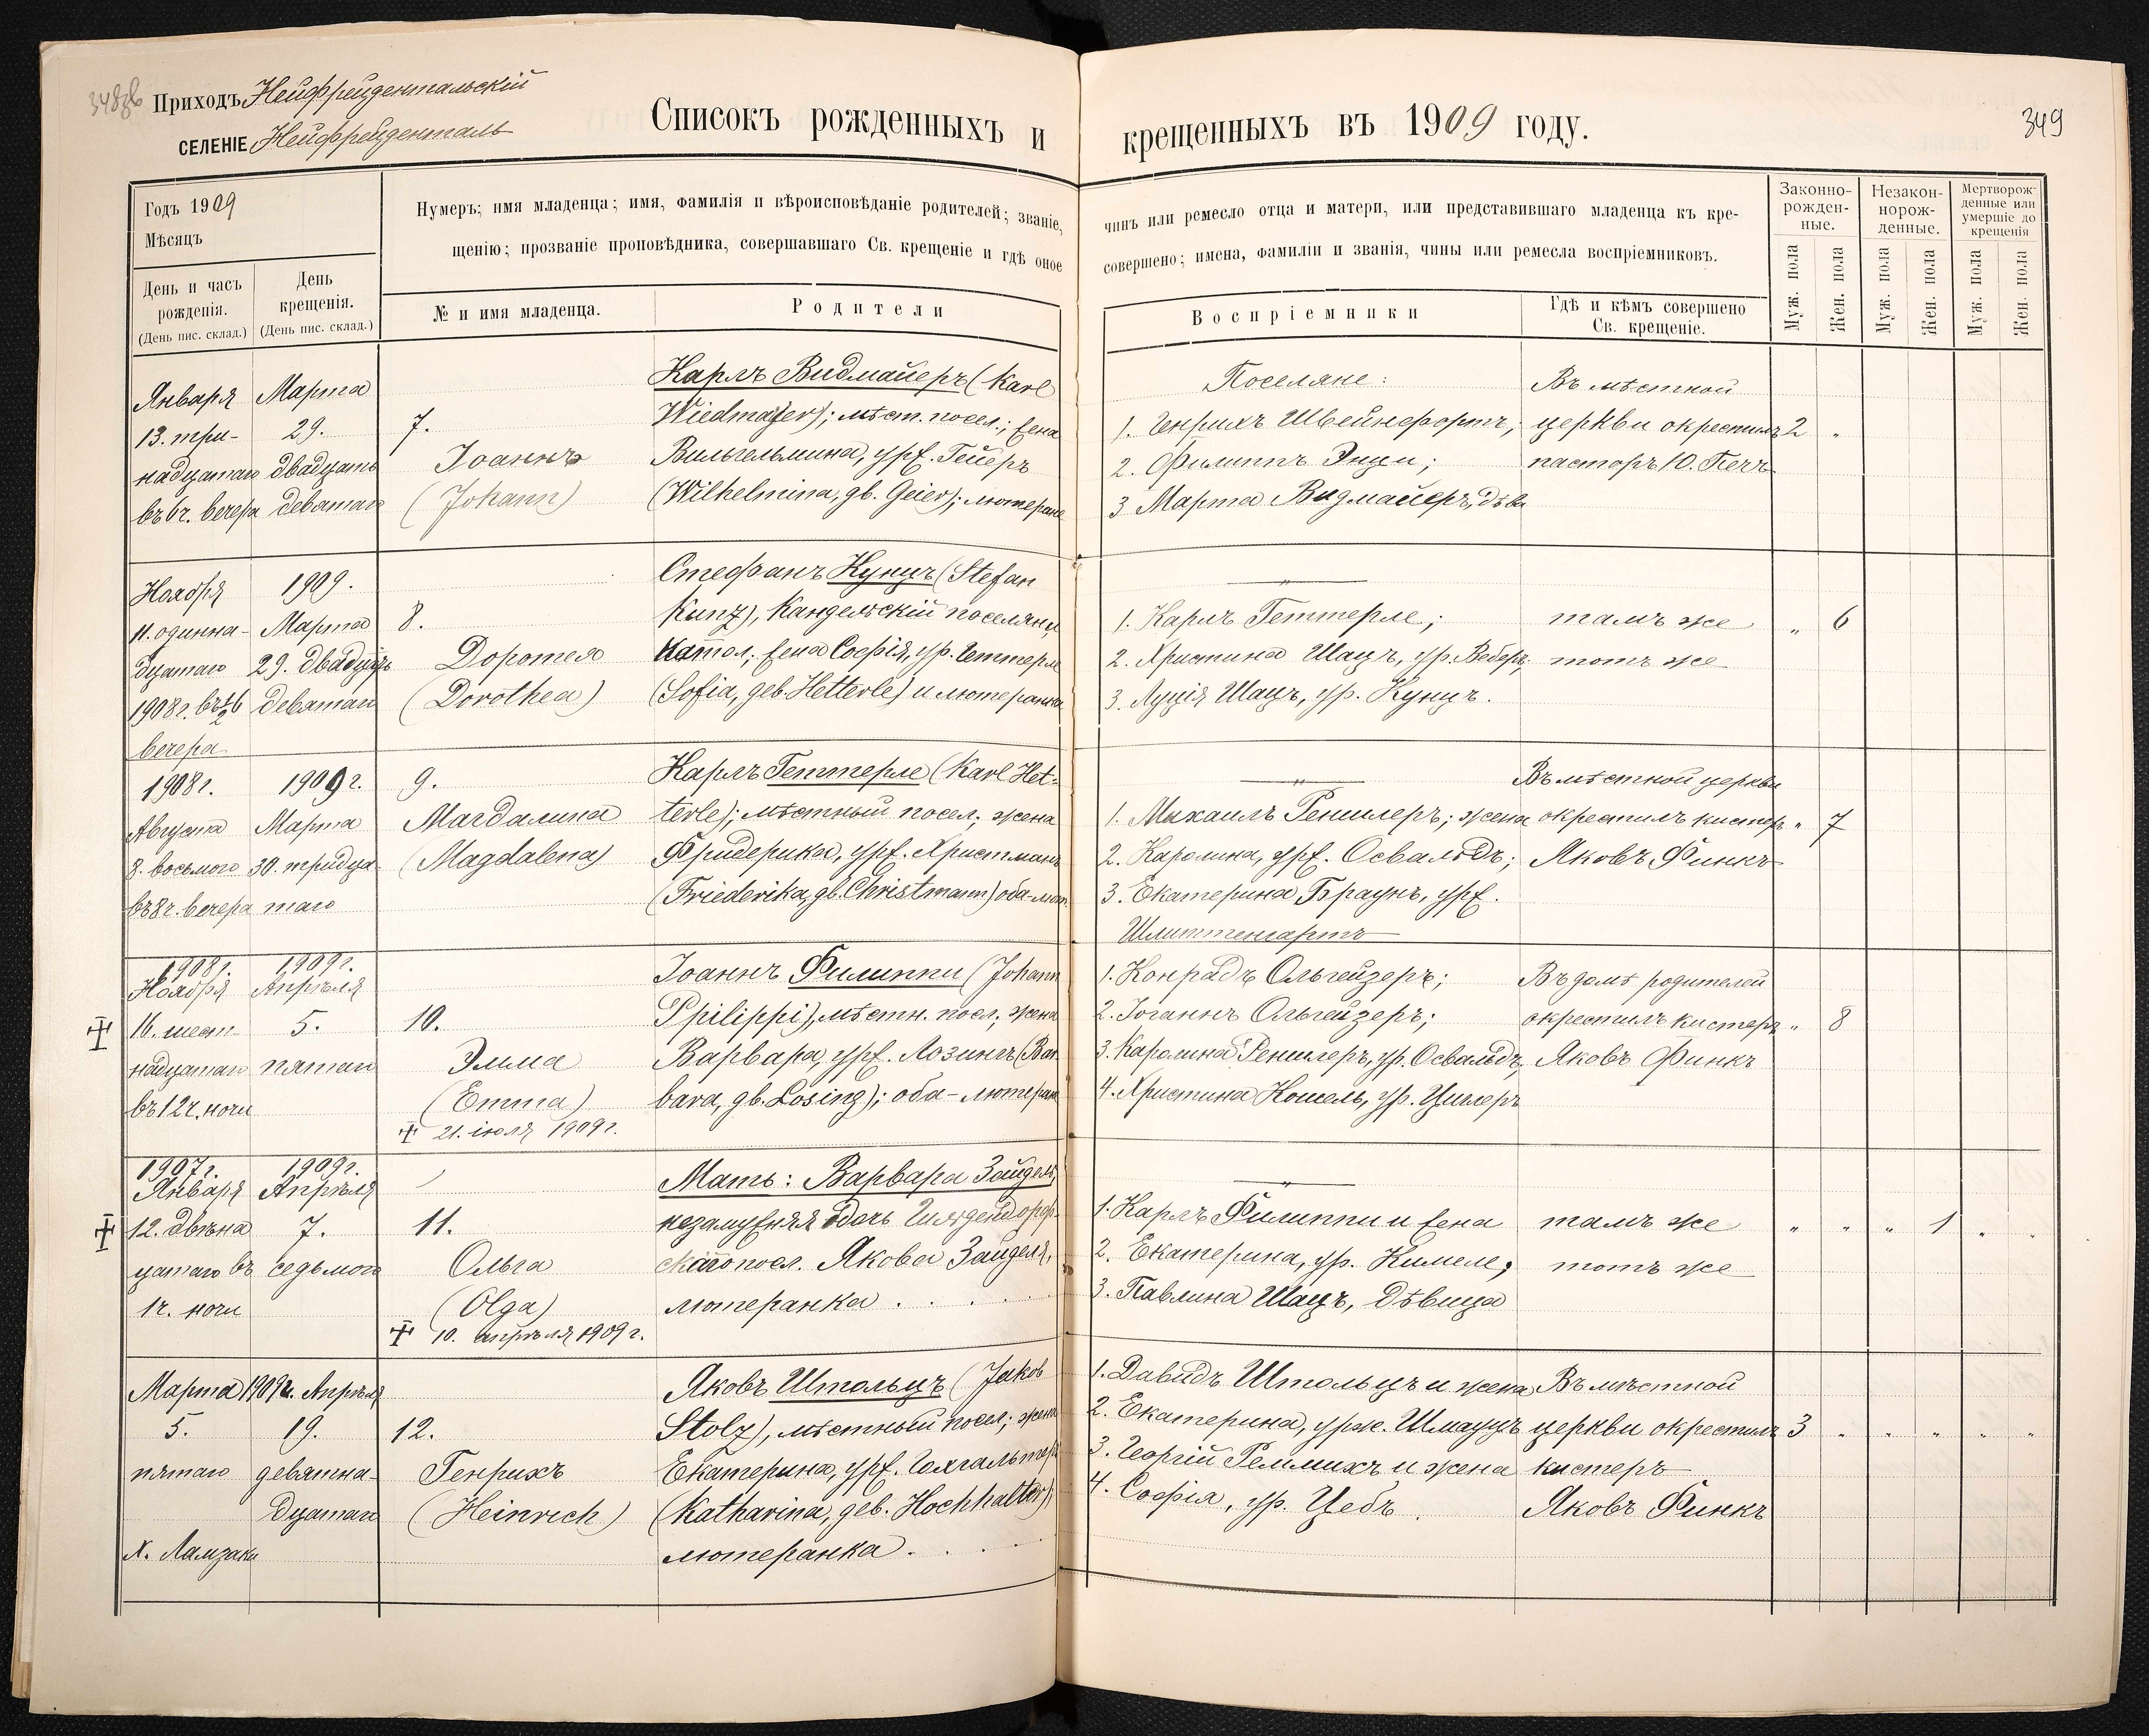 348об
Приходъ Нейфрейдентальскій
СЕЛЕНІЕ Нейфрейденталь
Списокъ рожденныхъ и крещенныхъ въ 1909 году.
349
Годъ 1909
Мѣсяцъ
День и часъ рожденія.
(День пис. склад.)
День крещенія.
(День пис. склад.)
Нумеръ; имя младенца; имя, фамилія и вѣроисповѣданіе родителей; званіе, чинъ или ремесло отца и матери, или представившаго младенца къ кре-
щенію; прозваніе проповѣдника, совершавшаго Св. крещеніе и гдѣ оное совершено; имена, фамиліи и званія, чины или ремесла воспріемниковъ.
№ и имя младенца.
Родители
Воспріемники
Гдѣ и кѣмъ совершено
Св. крещеніе.
Законно-
рожден-
ные.
Незакон-
норож-
денные.
Мертворож-
денные или
умершіе до
крещенія
Муж. пола
Жен. пола
Муж. пола
Жен. пола
Муж. пола
Жен. пола
Января
13. три-
надцатаго
въ 6 ч. вечера
Марта
29.
двадцать
девятаго
7.
Іоаннъ
(Johann)
Карлъ Видмайеръ (Karl
Wiedmajer); мѣст. посел.; жена
Вильгельмина, урж. Гейеръ
(Wilhelmina, gb. Geier); лютеране
Поселяне:
1. Генрихъ Швейнфортъ;
2. Филиппъ Энци;
3 Марта Видмайеръ, дѣва
Въ мѣстной
церкви окрестилъ
пасторъ Ю. Печъ
2 "
Ноября
11. одинна-
дцатаго
1908 г. въ ½ 6
вечера
1909.
Марта
29. двадцать
девятаго
8.
Доротея
(Dorothea)
Стефанъ Кунцъ (Stefan
Kunz), Кандельскій поселянин
катол; жена Софія, ур. Геттерле
(Sofia, geb. Hetterle) и лютеранка
"
1. Карлъ Геттерле;
2. Христина Шацъ, ур. Веберъ;
3. Луція Шацъ, ур. Кунцъ.
тамъ же
тотъ же
" 6
1908 г.
Августа
8. восьмого
въ 8 ч. вечера
1909 г.
Марта
30. тридца-
таго
9.
Магдалина
(Magdalena)
Карлъ Геттерле (Karl Het-
terle); мѣстный посел; жена
Фридерика, урж. Христманъ
(Friederika, gb. Christmann) оба-лют.
"
1. Михаилъ Реншлеръ; жена
2. Каролина, урж. Освальдъ;
3. Екатерина Браунъ, урж.
Шлиттенгартъ
Въ мѣстной церкви
окрестилъ кистеръ
Яковъ Финкъ
" 7
1908 г.
Ноября
16. шест-
надцатаго
въ 12 ч. ночи
1909 г.
Апрѣля
5.
пятаго
10.
Эмма
(Emma)
21. іюля 1909 г.
Іоаннъ Филиппи (Johann
Ppilippi), мѣстн. посл; жена
Варвара, урж. Лозингъ (Bar-
bara, gb. Losing); оба-лютеран
1. Конрадъ Ольгейзеръ;
2. Іоганнъ Ольгейзеръ;
3. Каролина Реншлеръ, ур. Освальдъ;
4. Христина Кошель, ур. Циглеръ
Въ домѣ родителей
окрестилъ кистеръ
Яковъ Финкъ
" 8
1907 г.
Января
12. двѣна
цатаго въ
1 ч. ночи
1909 г.
Апрѣля
7.
седьмого
11.
Ольга
(Olga)
10. апрѣля 1909 г.
Мать: Варвара Зайдель,
незамужняя дочь Гильдендорф-
скаго посл. Якова Зайделя,
лютеранка . . . .
"
1. Карлъ Филиппи и жена
2. Екатерина, ур. Кимеле;
3. Павлина Шацъ, дѣвица
тамъ же
тотъ же
" " " 1 " "
Марта
5.
пятаго
х. Ламзаки
1909 г. Апрѣля
19.
девятна-
дцатаго
12.
Генрихъ
(Heinrich)
Яковъ Штольцъ (Jakob
Stolz), мѣстный посел; жена
Екатерина, урж. Гохгальтеръ
(Katharina, geb. Hochhalter),
лютеранка . . . .
1. Давидъ Штольцъ и жена
2. Екатерина, урж. Шмауцъ
3. Георгій Реммихъ и жена
4. Софія, ур. Цебъ.
Въ мѣстной
церкви окрестилъ
кистеръ
Яковъ Финкъ
3 " " " " "